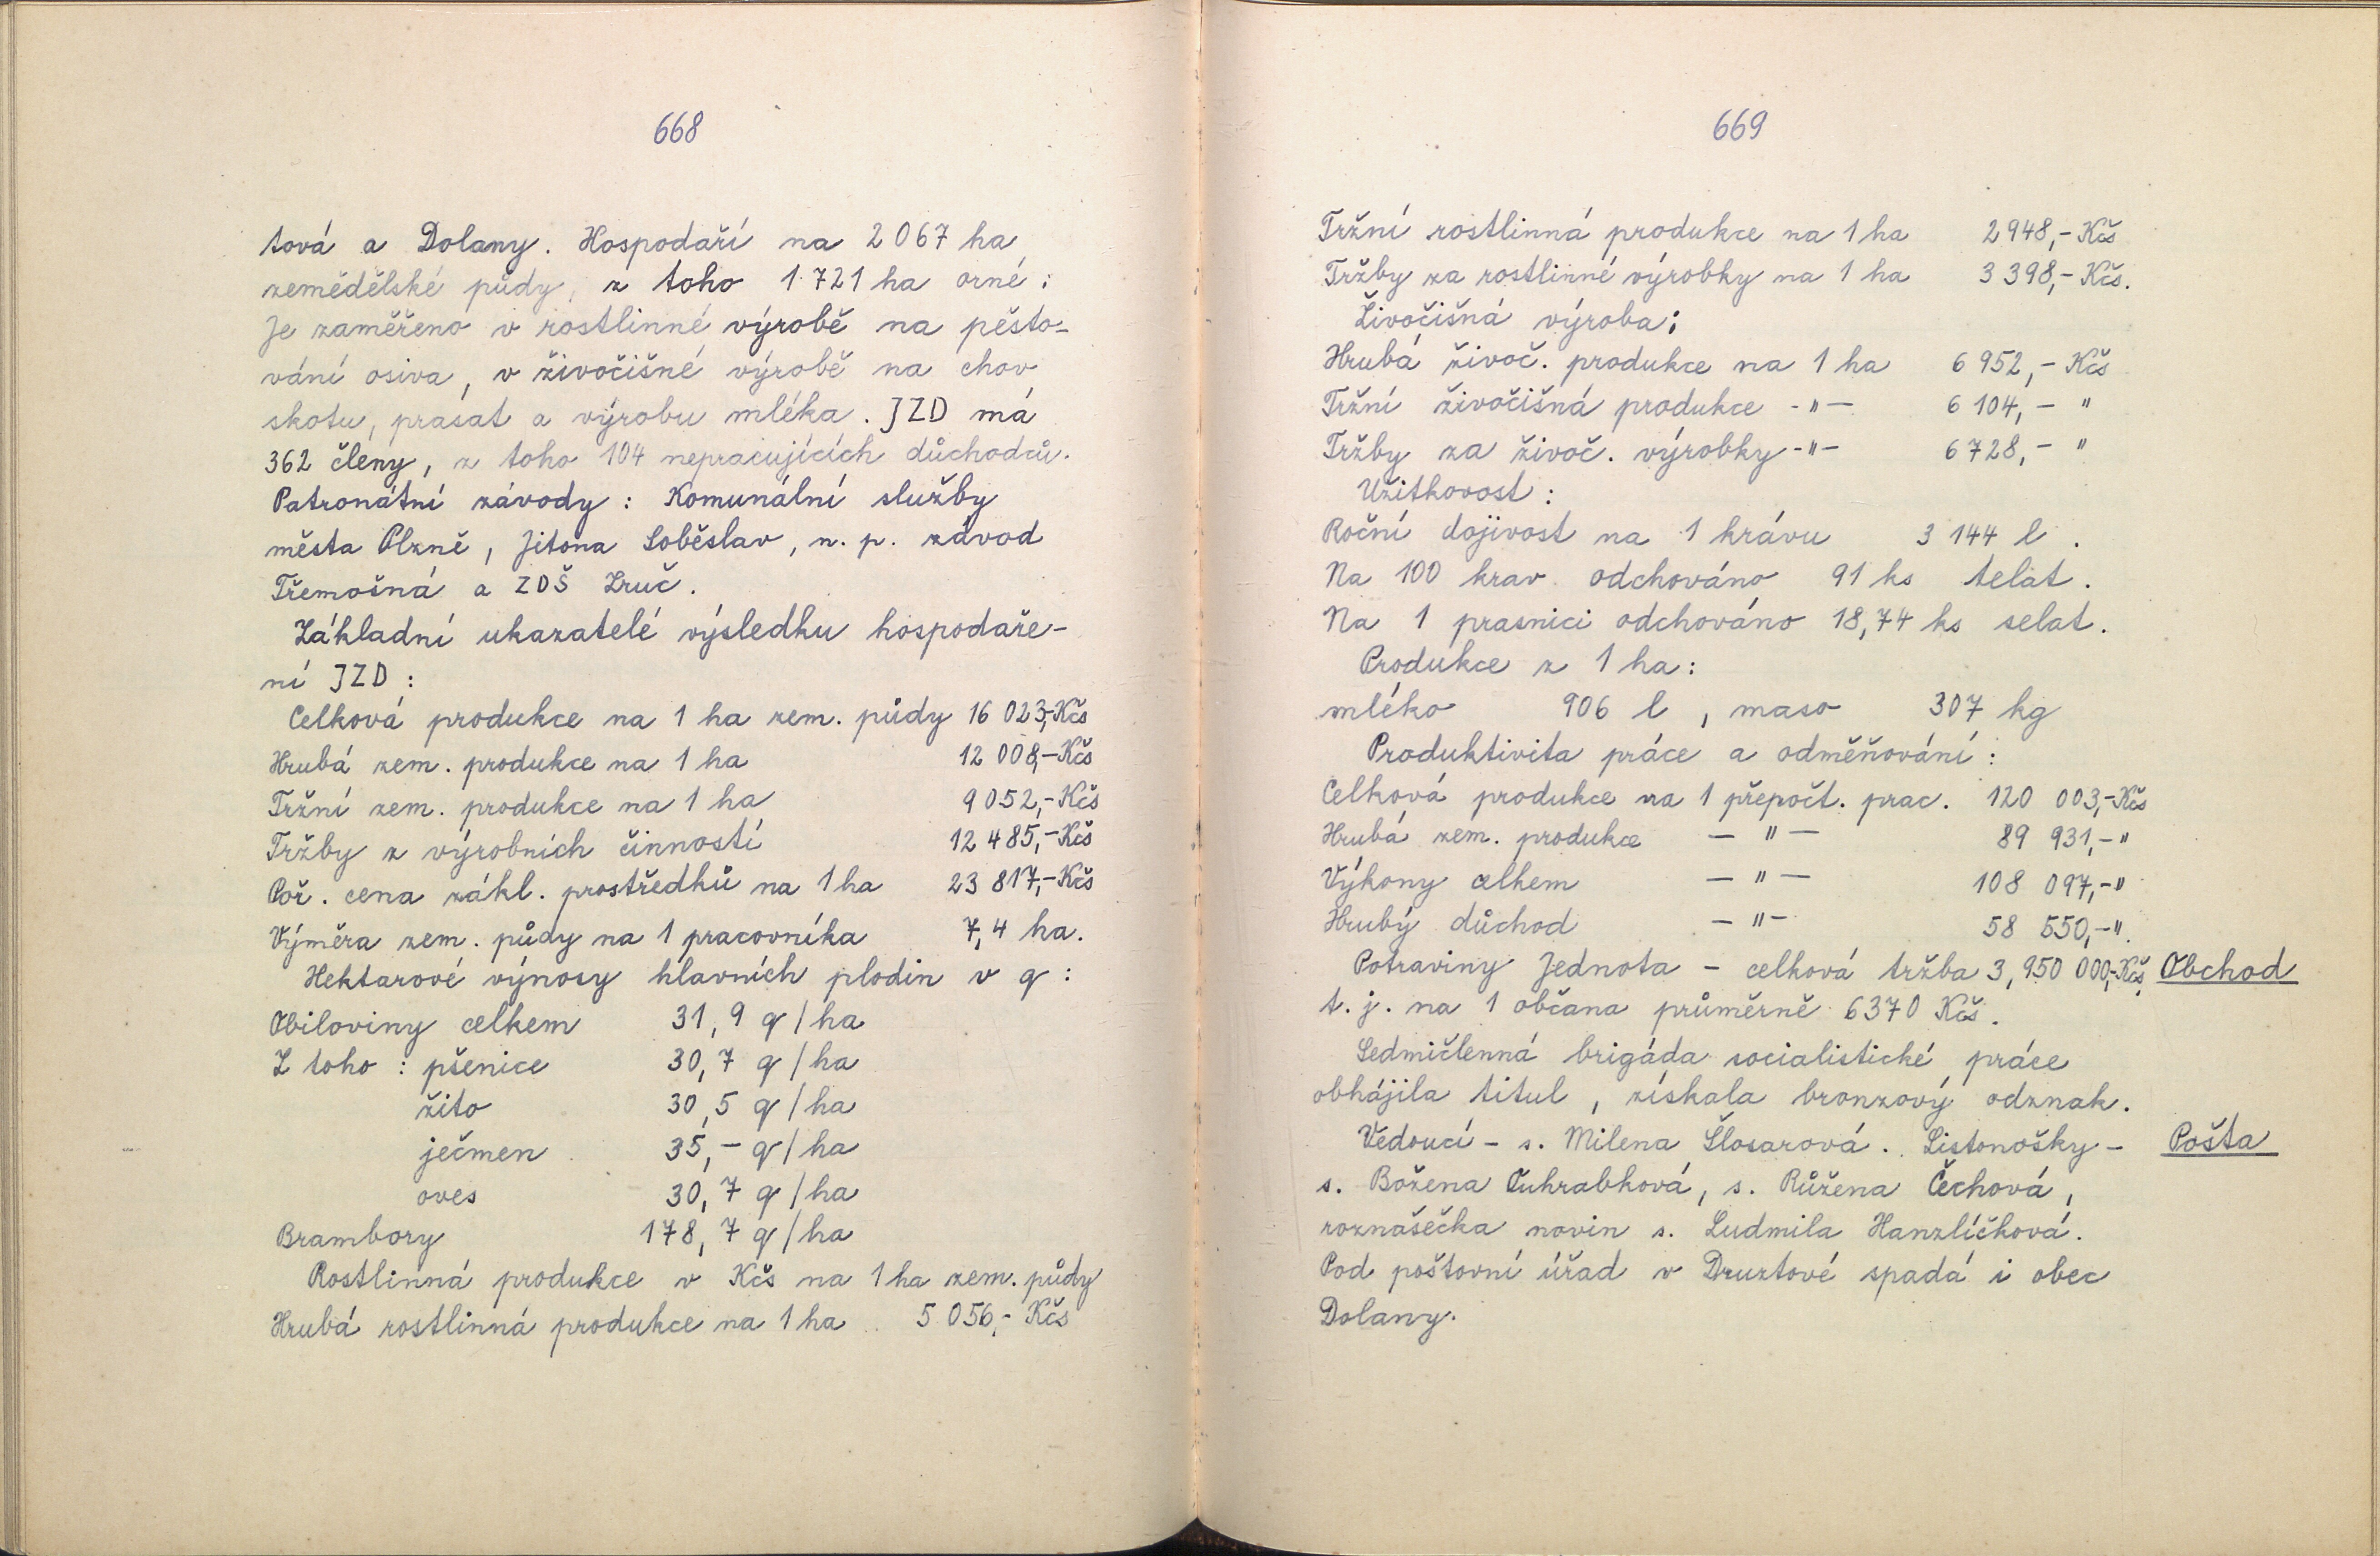 668
tová a Dolany. Hospodaří na 2 067 ha
zemědělské půdy, z toho 1 721 ha orné.
Je zaměřeno v rostlinné výrobě na pěsto-
vání osiva, v živočišné výrobě na chov
skotu, prasat a výrobu mléka. JZD má
362 členy, z toho 104 nepracujících důchodců.
Patronátní závody : Komunální služby
města Plzně, Jitona Soběslav, n. p. závod
Třemošná a ZDŠ Zruč.
Základní ukazatelé výsledku hospodaře-
ní JZD :
Celková produkce na 1 ha zem. půdy 16 023,-Kčs
Hrubá zem. produkce na 1 ha 12 008,-Kčs
Tržní zem. produkce na 1 ha 9 052,-Kčs
Tržby z výrobních činností 12 485,-Kčs
Poř. cena zákl. prostředků na 1 ha 23 817,-Kčs
Výměra zem. půdy na 1 pracovníka 7,4 ha.
Hektarové výnosy hlavních plodin v q :
Obiloviny celkem 31,9 q/ha
Z toho : pšenice 30,7 q/ha
žito 30,5 q/ha
ječmen 35,- q/ha
oves 30,7 q/ha
Brambory 178,7 q/ha
Rostlinná produkce v Kčs na 1 ha zem. půdy
Hrubá rostlinná produkce na 1 ha 5 056,- Kčs
669
Tržní rostlinná produkce na 1 ha 2 948,- Kčs
Tržby za rostlinné výrobky na 1 ha 3 398,- Kčs.
Živočišná výroba:
Hrubá živoč. produkce na 1 ha 6 952,- Kčs
Tržní živočišná produkce -"- 6 104,- "
Tržby za živoč. výrobky -"- 6 728,- "
Užitkovost :
Roční dojivost na 1 krávu 3 144 l.
Na 100 krav odchováno 91 ks telat.
Na 1 prasnici odchováno 18,74 ks selat.
Produkce z 1 ha :
mléko 906 l, maso 307 kg
Produktivita práce a odměňování :
Celková produkce na 1 přepočt. prac. 120 003,-Kčs
Hrubá zem. produkce -"- 89 931,-"
Výkony celkem -"- 108 097,-"
Hrubý důchod -"- 58 550,-".
Potraviny Jednota - celková tržba 3,950 000,-Kčs Obchod
t. j. na 1 občana průměrně 6370 Kčs.
Sedmičlenná brigáda socialistické práce
obhájila titul, získala bronzový odznak.
Vedoucí - s. Milena Šlosarová. Listonošky - Pošta
s. Božena Cuhrabková, s. Růžena Čechová,
roznášečka novin s. Ludmila Hanzlíčková.
Pod poštovní úřad v Druztové spadá i obec
Dolany.